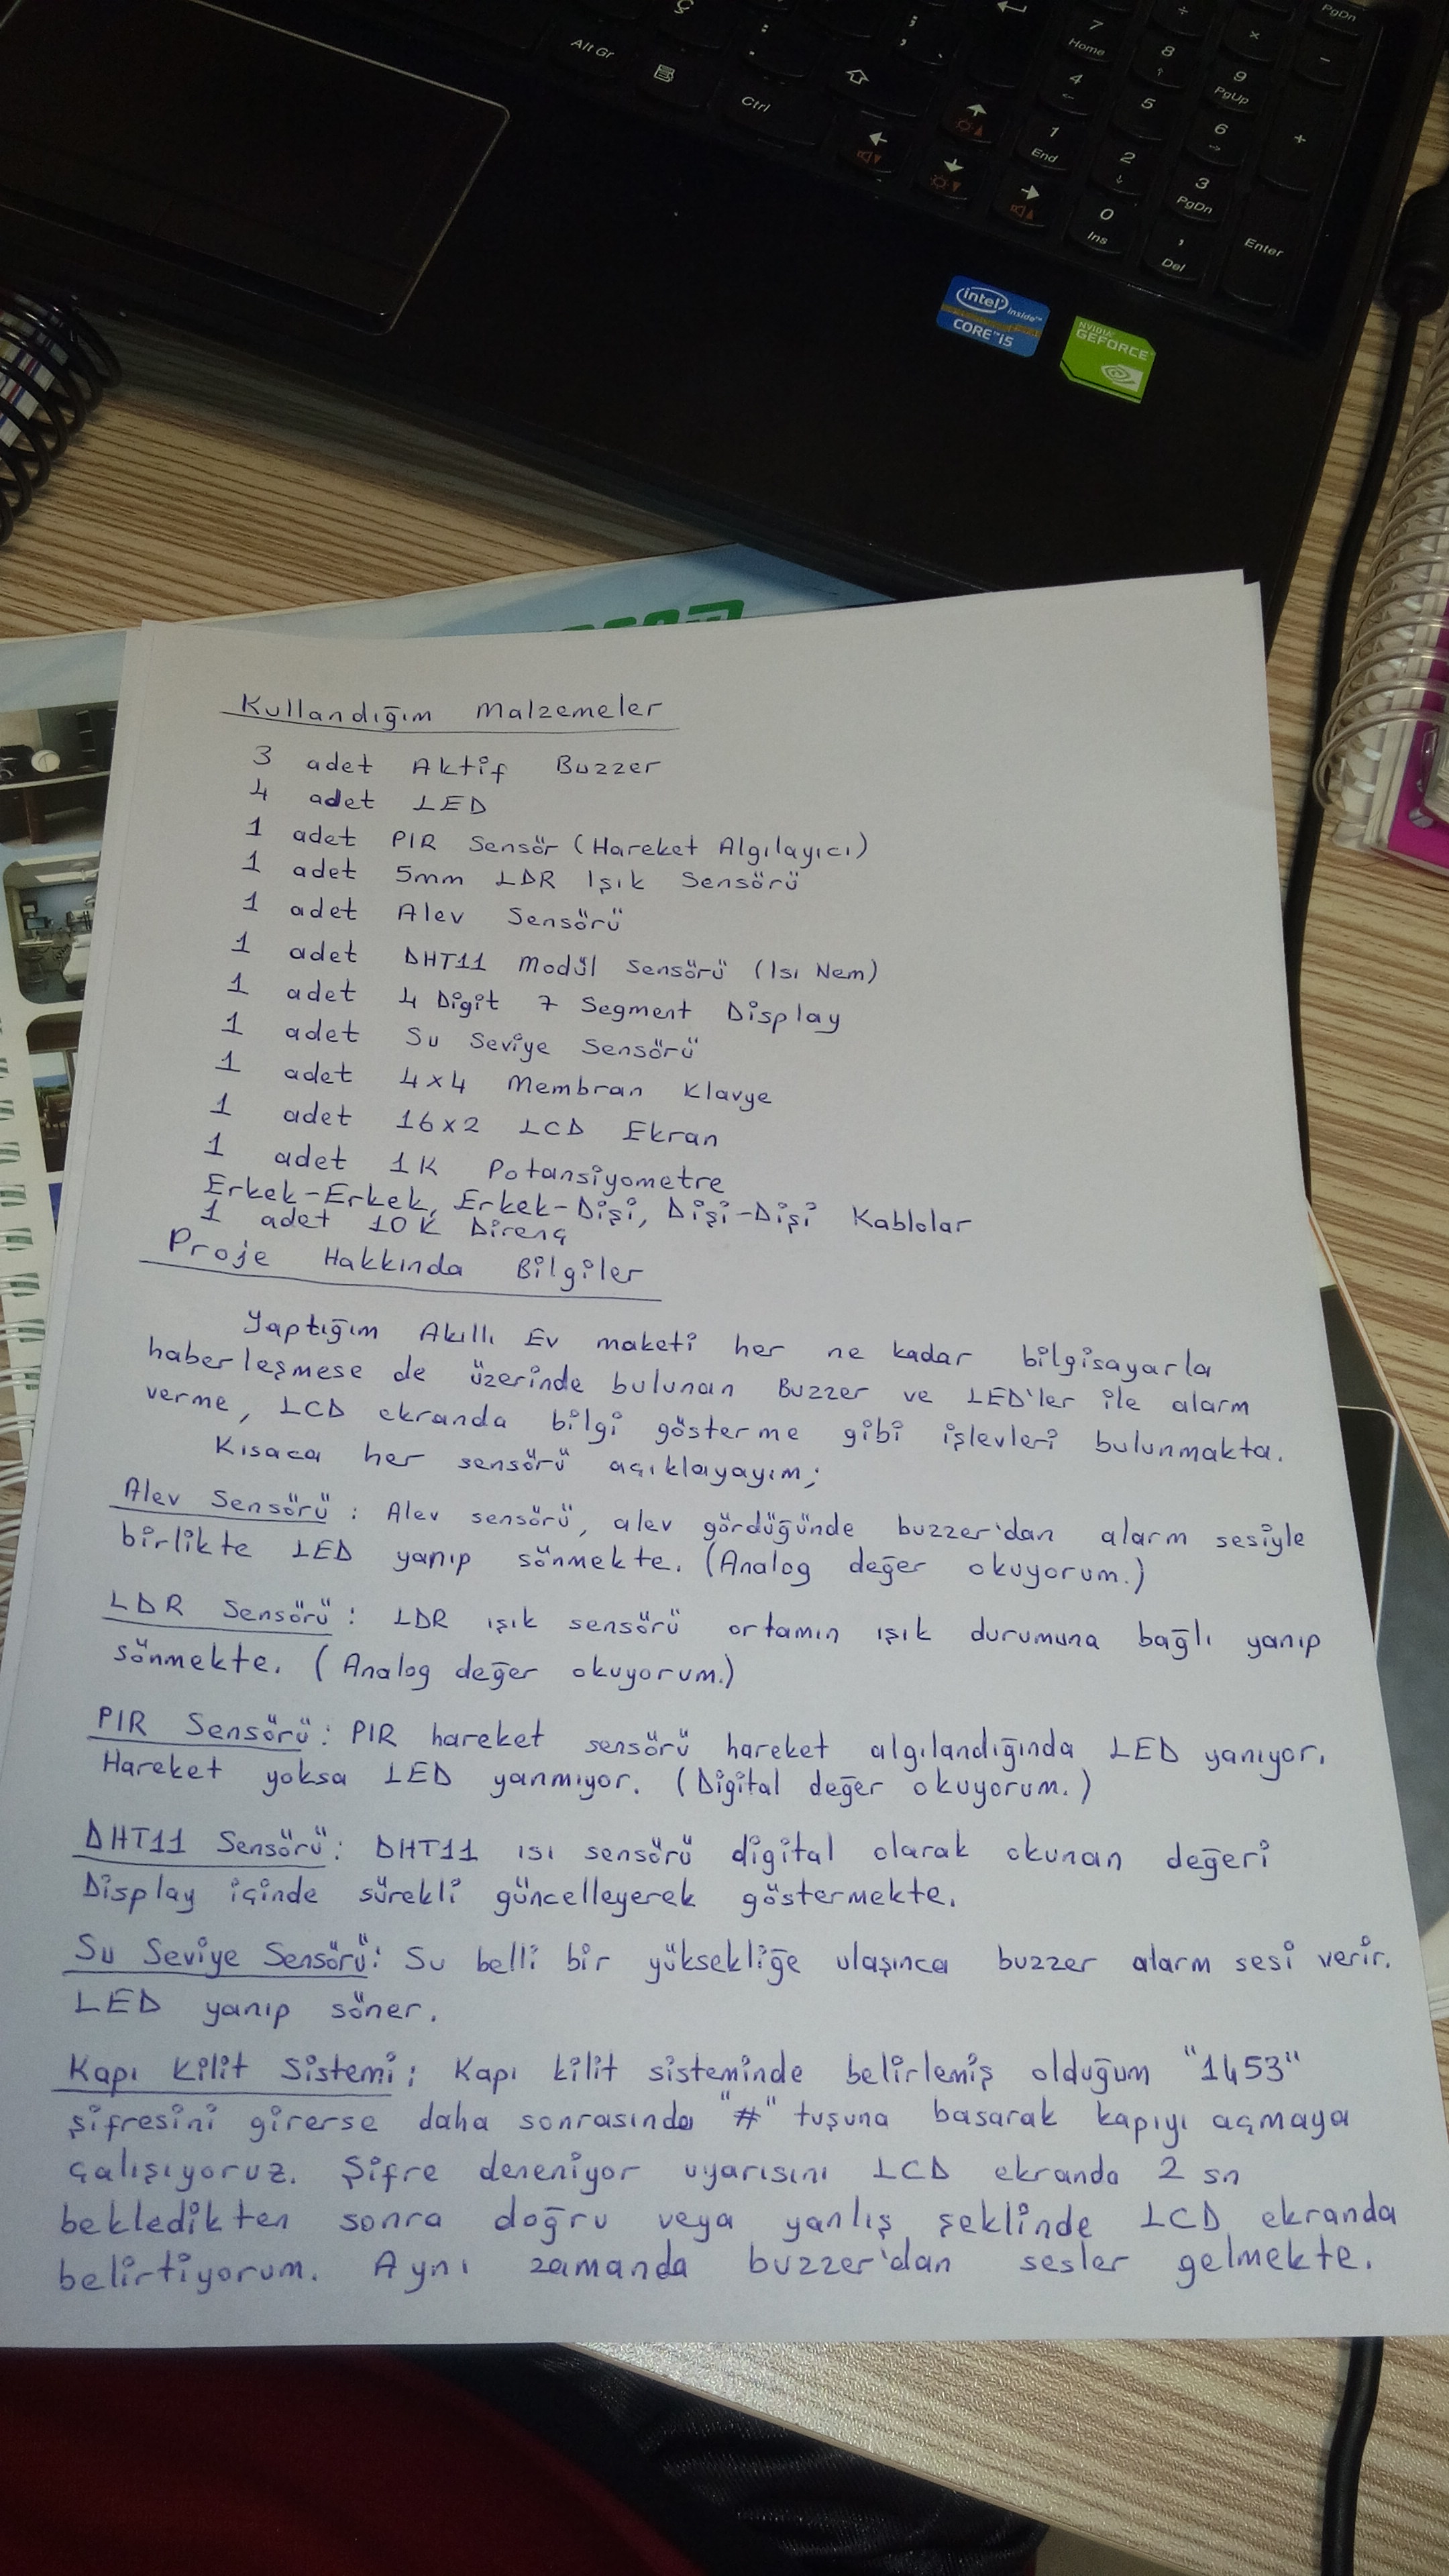 Ç
Alt Gr
Ctrl
7
Home
8
9
PgUp
PgDn
4
5
6
+
1
End
2
3
PgDn
0
Ins
,
Del
Enter
intel inside™
CORE™ i5
NVIDIA
GEFORCE
Kullandığım Malzemeler
3 adet Aktif Buzzer
4 adet LED
1 adet PIR Sensör (Hareket Algılayıcı)
1 adet 5mm LDR Işık Sensörü
1 adet Alev Sensörü
1 adet DHT11 Modül Sensörü (Isı Nem)
1 adet 4 Digit 7 Segment Display
1 adet Su Seviye Sensörü
1 adet 4x4 Membran Klavye
1 adet 16x2 LCD Ekran
1 adet 1K Potansiyometre
Erkek-Erkek, Erkek-Dişi, Dişi-Dişi Kablolar
1 adet 10K Direnç
Proje Hakkında Bilgiler
Yaptığım Akıllı Ev maketi her ne kadar bilgisayarla
haberleşmese de üzerinde bulunan Buzzer ve LED'ler ile alarm
verme, LCD ekranda bilgi gösterme gibi işlevleri bulunmakta.
Kısaca her sensörü açıklayayım;
Alev Sensörü : Alev sensörü, alev gördüğünde buzzer'dan alarm sesiyle
birlikte LED yanıp sönmekte. (Analog değer okuyorum.)
LDR Sensörü : LDR ışık sensörü ortamın ışık durumuna bağlı yanıp
sönmekte. (Analog değer okuyorum.)
PIR Sensörü : PIR hareket sensörü hareket algılandığında LED yanıyor.
Hareket yoksa LED yanmıyor. (Digital değer okuyorum.)
DHT11 Sensörü : DHT11 ısı sensörü digital olarak okunan değeri
Display içinde sürekli güncelleyerek göstermekte.
Su Seviye Sensörü : Su belli bir yüksekliğe ulaşınca buzzer alarm sesi verir.
LED yanıp söner.
Kapı Kilit Sistemi : Kapı kilit sisteminde belirlemiş olduğum "1453"
şifresini girerse daha sonrasında "#" tuşuna basarak kapıyı açmaya
çalışıyoruz. Şifre deneniyor uyarısını LCD ekranda 2 sn
bekledikten sonra doğru veya yanlış şeklinde LCD ekranda
belirtiyorum. Aynı zamanda buzzer'dan sesler gelmekte.